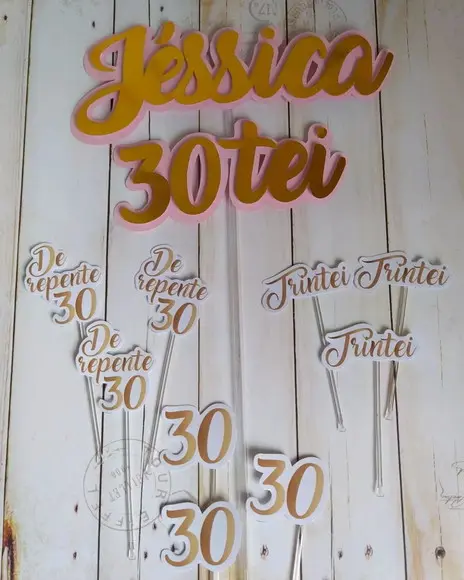 Jéssica
30tei
De
repente
30
De
repente
30
De
repente
30
Trintei
Trintei
Trintei
30
30
30